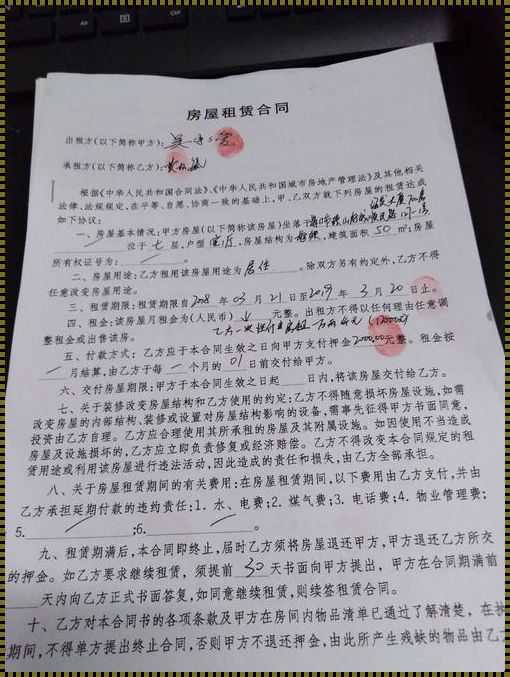 房屋租赁合同
出租方(以下简称甲方):
承租方(以下简称乙方):
根据《中华人民共和国合同法》、《中华人民共和国城市房地产管理法》及其他相关
法律、法规规定,在平等、自愿、协商一致的基础上,甲、乙双方就下列房屋的租赁达成
如下协议:
一、房屋基本情况:甲方房屋(以下简称该房屋)坐落于
位于七层,户型,房屋结构为,建筑面积50m²;房屋
所有权证号为:。
二、房屋用途:乙方租用该房屋用途为居住。除双方另有约定外,乙方不得
任意改变房屋用途。
三、租赁期限:租赁期限自2018年03月21日至2019年3月20日止。
四、租金:该房屋月租金为(人民币)元整。出租方不得以任何理由任意调
整租金或出售该房。
五、付款方式:乙方应于本合同生效之日向甲方支付押金2000.00元整。租金按
月结算,由乙方于每个月的01日前交付给甲方。
六、交付房屋期限:甲方于本合同生效之日起日内,将该房屋交付给乙方。
七、关于装修改变房屋结构和乙方使用的约定:乙方不得随意损坏房屋设施,如需
改变房屋的内部结构、装修或设置对房屋结构影响的设备,需事先征得甲方书面同意,
投资由乙方自理。乙方应合理使用其所承租的房屋及其附属设施。如因使用不当造成
房屋及设施损坏的,乙方应立即负责修复或经济赔偿。乙方不得改变本合同规定的租
赁用途或利用该房屋进行违法活动,因此造成的责任和损失,由乙方全部承担。
八、关于房屋租赁期间的有关费用:在房屋租赁期间,以下费用由乙方支付,并由
乙方承担延期付款的违约责任:1. 水、电费;2. 煤气费;3. 电话费;4. 物业管理费;
5.;6.。
九、租赁期满后,本合同即终止,届时乙方须将房屋退还甲方,甲方退还乙方所交
的押金。如乙方要求继续租赁,须提前30天书面向甲方提出,甲方在合同期满前
天内向乙方正式书面答复,如同意继续租赁,则续签租赁合同。
十、乙方对本合同书的各项条款及甲方在房间内物品清单已通过了解清楚,在
期间,不得单方提出终止合同,否则甲方不退还押金,由此所产生残缺的物品由乙